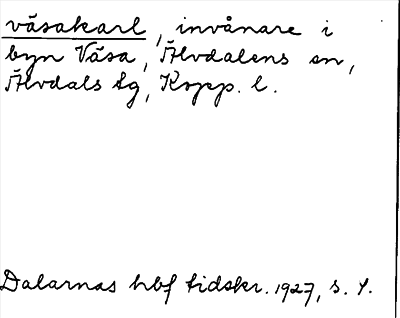 väsakarl, invånare i
byn Väsa, Älvdalens sn,
Älvdals tg, Kopp. l.
Dalarnas hbf tidskr. 1927, s. 9.